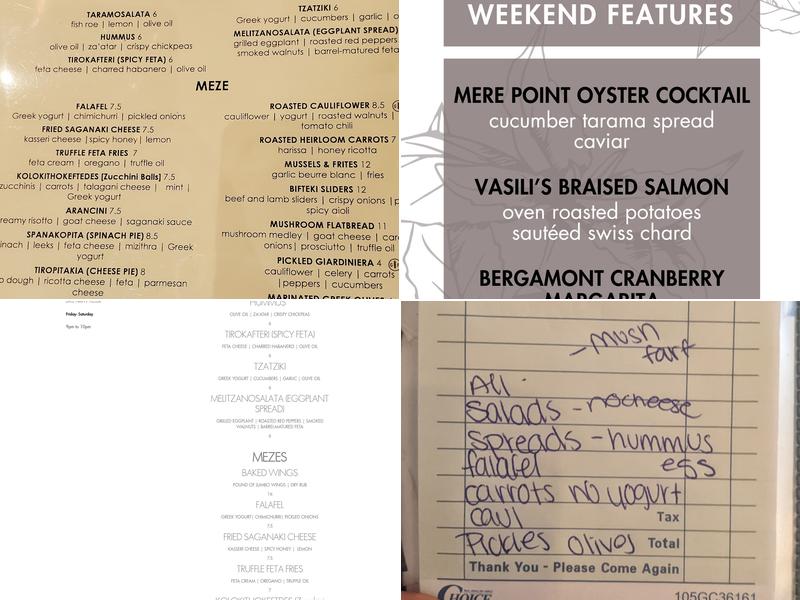 TARAMOSALATA 6
fish roe | lemon | olive oil
HUMMUS 6
olive oil | za'atar | crispy chickpeas
TIROKAFTERI (SPICY FETA) 6
feta cheese | charred habanero | olive oil
TZATZIKI 6
Greek yogurt | cucumbers | garlic |
MELITZANOSALATA (EGGPLANT SPREAD)
grilled eggplant | roasted red peppers
smoked walnuts | barrel-mature feta
MEZE
FALAFEL 7.5
Greek yogurt | chimichurri | pickled onions
FRIED SAGANAKI CHEESE 7.5
kasseri cheese |spicy honey | lemon
TRUFFLE FETA FRIES 7
feta cream | oregano | truffle oil
KOLOKITHOKEFTEDES [Zucchini Balls] 7.5
zucchinis | carrots | talagani cheese | mint |
Greek yogurt
ARANCINI 7.5
creamy risotto | goat cheese | saganaki sauce
SPANAKOPITA (SPINACH PIE) 8.5
| leeks | feta cheese | mizithra | Greek
yogurt
TIROPITAKIA (CHEESE PIE) 8
dough | ricotta cheese | feta | parmesan
cheese
ROASTED CAULIFLOWER 8.5
cauliflower | yogurt | roasted walnuts |
tomato chili
ROASTED HEIRLOOM CARROTS 7
MUSSELS & FRITES 12
garlic beurre blanc | fries
BIFTEKI SLIDERS 12
beef and lamb sliders | crispy onions
spicy aioli
MUSHROOM FLATBREAD 11
mushroom medley | goat cheese |
onions| prosciutto | truffle oil
PICKLED GIARDINIERA 4
cauliflower | celery | carrots
| peppers | cucumbers
MARINATED GREEK OLIVES
WEEKEND FEATURES
MERE POINT OYSTER COCKTAIL
cucumber tarama spread
caviar
VASILI'S BRAISED SALMON
oven roasted potatoes
sautéed swiss chard
BERGAMONT CRANBERRY
MARGARITA
Friday- Saturday
9pm to 10pm
HUMMUS
OLIVE OIL | ZA'ATAR | CRISPY CHICKPEAS
6
TIROKAFTERI (SPICY FETA)
FETA CHEESE | CHARRED HABANERO | OLIVE OIL
6
TZATZIKI
GREEK YOGURT | CUCUMBERS | GARLIC | OLIVE OIL
6
MELITZANOSALATA (EGGPLANT
SPREAD)
GRILLED EGGPLANT | ROASTED RED PEPPERS | SMOKED
WALNUTS | BARREL-MATURE FETA
6
MEZES
BAKED WINGS
POUND OF JUMBO WINGS | DRY RUB
16
FALAFEL
GREEK YOGURT| CHIMICHURRI| PICKLED ONIONS
7.5
FRIED SAGANAKI CHEESE
KASSERI CHEESE | SPICY HONEY | LEMON
7.5
TRUFFLE FETA FRIES
FETA CREAM | OREGANO | TRUFFLE OIL
7
- mush
fart
All
Salads - no cheese
spreads - hummus
falafel egg
carrots no yogurt
caul Tax
Pickles Olives Total
Thank You - Please Come Again
CHOICE 105GC36161